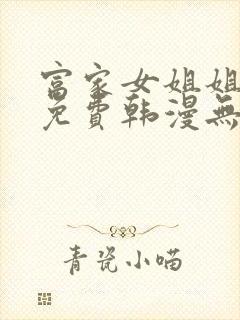 富家女姐姐
免費韩漫無
青瓷小喵